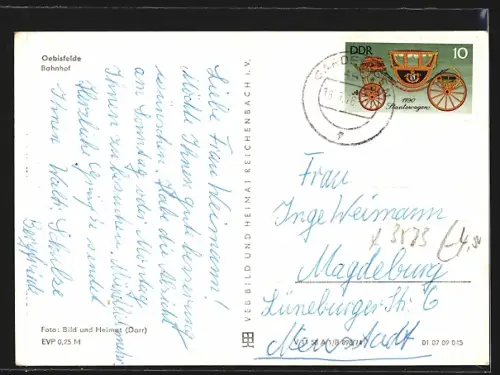 Oebisfelde
Bahnhof
Liebe Frau Weimann!
Möchte Ihnen gute Besserung
wünschen. Habe die Absicht
am Sonntag oder Montag
Ihnen zu besuchen.
Herzliche Grüße sendet
Ihnen Waltr. Schulze
Foto: Bild und Heimat (Darr)
EVP 0,25 M
VEB BILD UND HEIMAT REICHENBACH i. V.
DDR
10
1790
Staatswagen
Frau
Inge Weimann
Magdeburg
Lüneburger-Str. 6
Neustadt
01 07 09 015